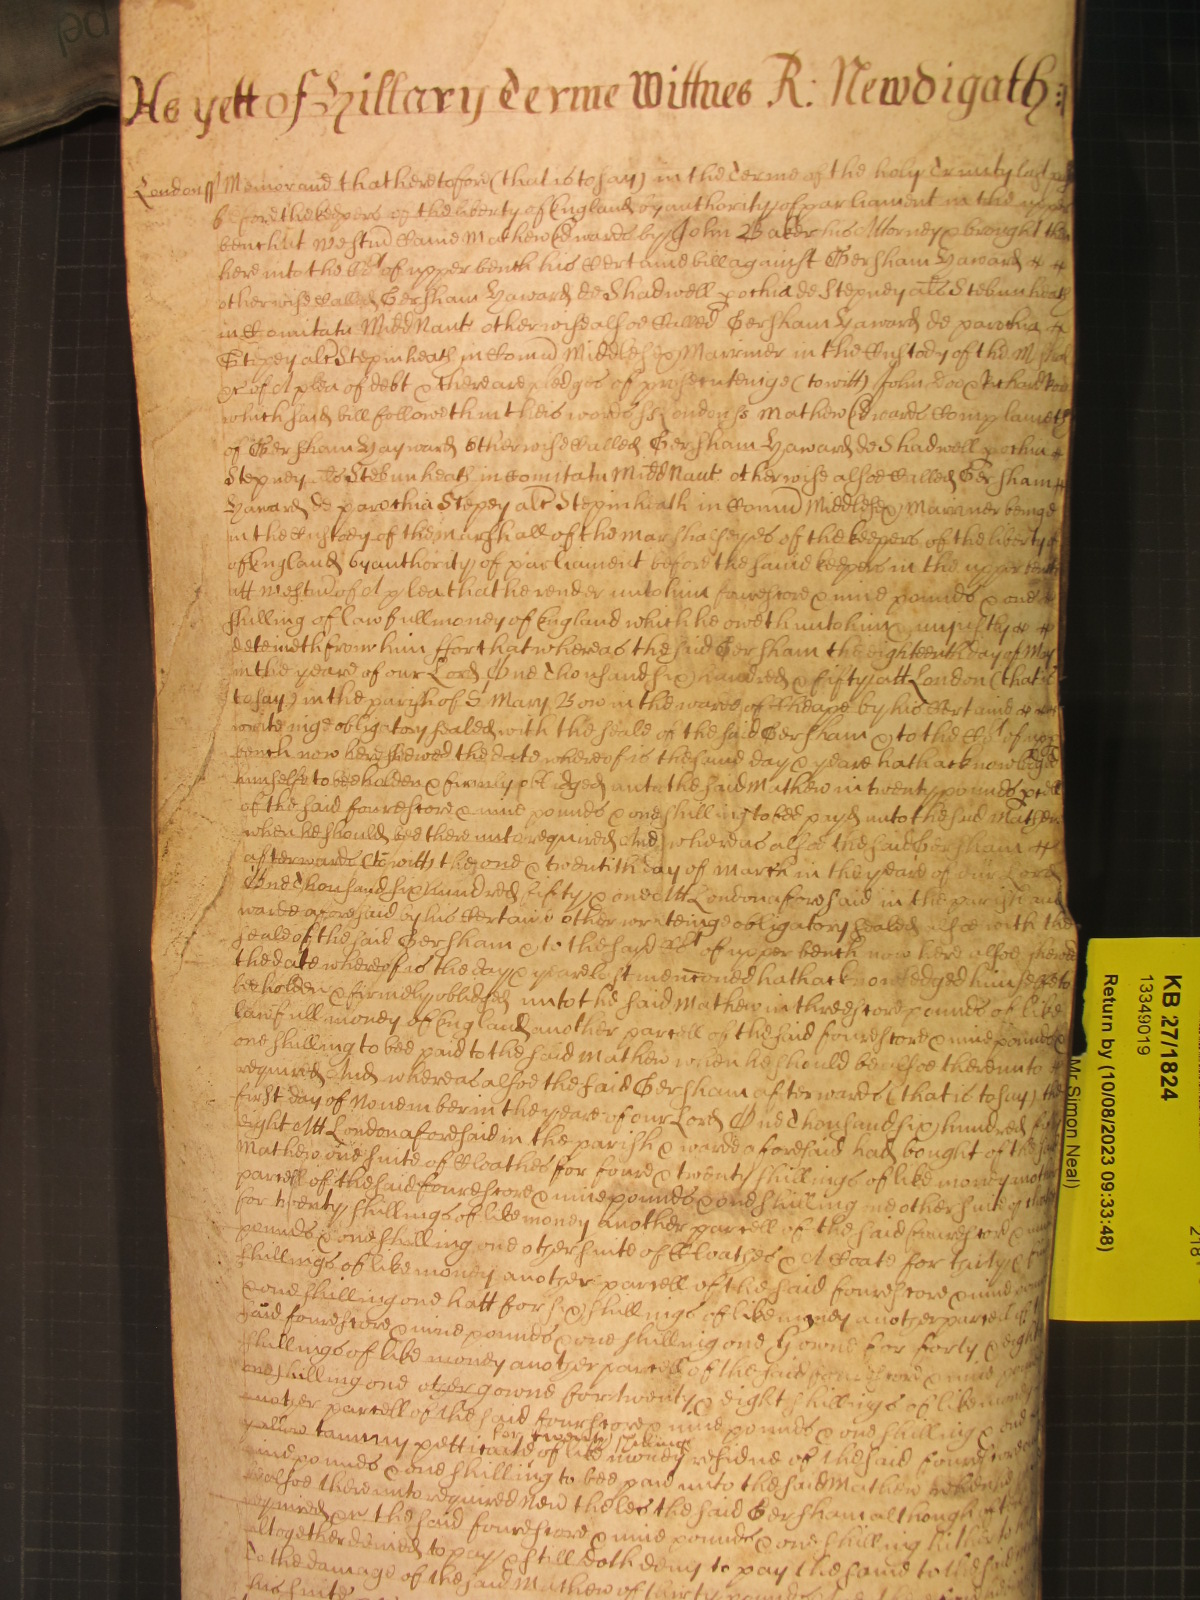 As yett of Hillary Terme Wittnes R: Newdigath:
London ss Memorand that heretofore (that is to say) in the Terme of the holy Trinity last past
before the keepers of the liberty of England by authority of parliament in the upper
bench att Westm̄ Came Mathew Edwards by John Baker his Attorney & brought then
here into the Co:rt of upper bench his Certaine bill against Gersham Haward
otherwise Called Gersham Haward de Shadwell pochia de Stepney als Stebunheath
in Comitatu Midd Naut otherwise alsoe Called Gersham Haward de parochia
Stepey als Stepinheath in Comit Middlesex Marriner in the Custody of the Marshal
&c of A plea of debt & there are pledges of prosecuteinge (to witt) John Doo & Richard Roo
which said bill followeth in theis words ss London ss Mathew Edwards Complaineth
of Gersham Hayward otherwise Called Gersham Haward de Shadwell pochia
Stepney als Stebunheath in Comitatu Midd Naut otherwise alsoe Called Gersham
Haward de parochia Stepey als Stepinheath in Comit Middlesex Marriner beinge
in the Custody of the Marshall of the Marshalseyes of the keepers of the liberty
of England by authority of parliament before the same keepers in the upper bench
att Westm̄ of A plea that he render unto him fourescore & nine pounds & one
shilling of lawfull money of England which he oweth unto him & unjustly
deteineth from him ffor that whereas the said Gersham the eighteenth day of May
in the yeare of our Lord One Thousand six hundred & fifty att London (that is
to say) in the parish of S Mary Bow in the warde of Cheape by his Certaine
writeinge obligatory sealed with the seale of the said Gersham & to the Co:rt of upper
bench now here shewed the date whereof is the same day & yeare hath acknowledged
himselfe to bee holden & firmly obliged unto the said Mathew in twenty pounds pcell
of the said fourescore & nine pounds & one shilling to bee payd unto the said Mathew
when he should bee thereunto required And whereas alsoe the said Gersham
afterwards (to witt) the one & twentith day of March in the yeare of our Lord
One Thousand six hundred fifty & one Att London aforesaid in the parish and
warde aforesaid by his Certaine other writeinge obligatory sealed alsoe with the
seale of the said Gersham & to the said Co:rt of upper bench now here alsoe shewed
the date whereof is the day & yeare last menconed hath acknowledged himselfe to
bee holden & firmely obliged unto the said Mathew in threescore pounds of like
lawfull money of England another parcell of the said fourescore & nine pounds &
one shilling to bee paid to the said Mathew when he should be alsoe thereunto
required And whereas alsoe the said Gersham afterwards (that is to say) the
first day of November in the yeare of our Lord One Thousand six hundred fifty
eight Att London aforesaid in the parish & warde aforesaid had bought of the said
Mathew one suite of Cloathes for foure & twenty shillings of like money another
parcell of the said fourescore & nine pounds & one shilling one other suite of
for twenty shillings of like money another parcell of the said fourescore & nine
pounds & one shilling one other suite of Cloathes & A Coate for
shillings of like money another parcell of the said fourescore & nine pounds
& one shilling one hatt for six shillings of like money another parcell of the
said fourescore & nine pounds & one shilling one Gowne for forty & eight
shillings of like money another parcell of the said fourescore & nine pounds
one shilling one other gowne for twenty & eight shillings of like money
another parcell of the said fourescore & nine pounds & one shilling & one
yallow tammy petticoate for twenty shillings of like money residue of the said fourescore
nine pounds & one shilling to bee paid unto the said Mathew when
alsoe thereunto required Nev theles the said Gersham although often
required &c the said fourescore & nine pounds & one shilling hitherto
altogether denied to pay & still doth deny to pay the same to the said
To the damage of the said Mathew of thirty pounds
his suite
KB 27/1824
13349019
Return by (10/08/2023 09:33:48)
Mr Simon Neal)